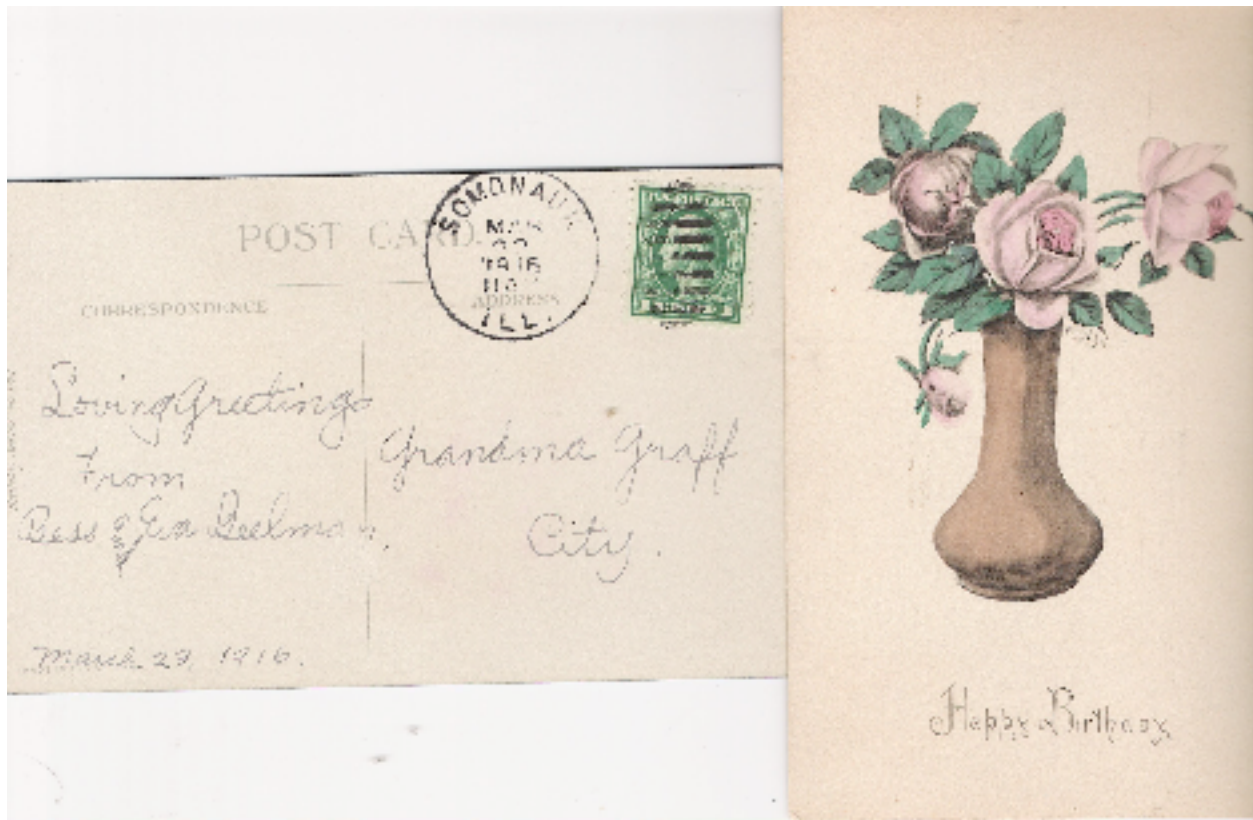 POST CARD.
SOMONAUK
MAR
1916
ILL.
CORRESPONDENCE
ADDRESS
Loving Greetings
From
Bess &
Grandma Graff
City.
March 29, 1916.
Happy Birthday